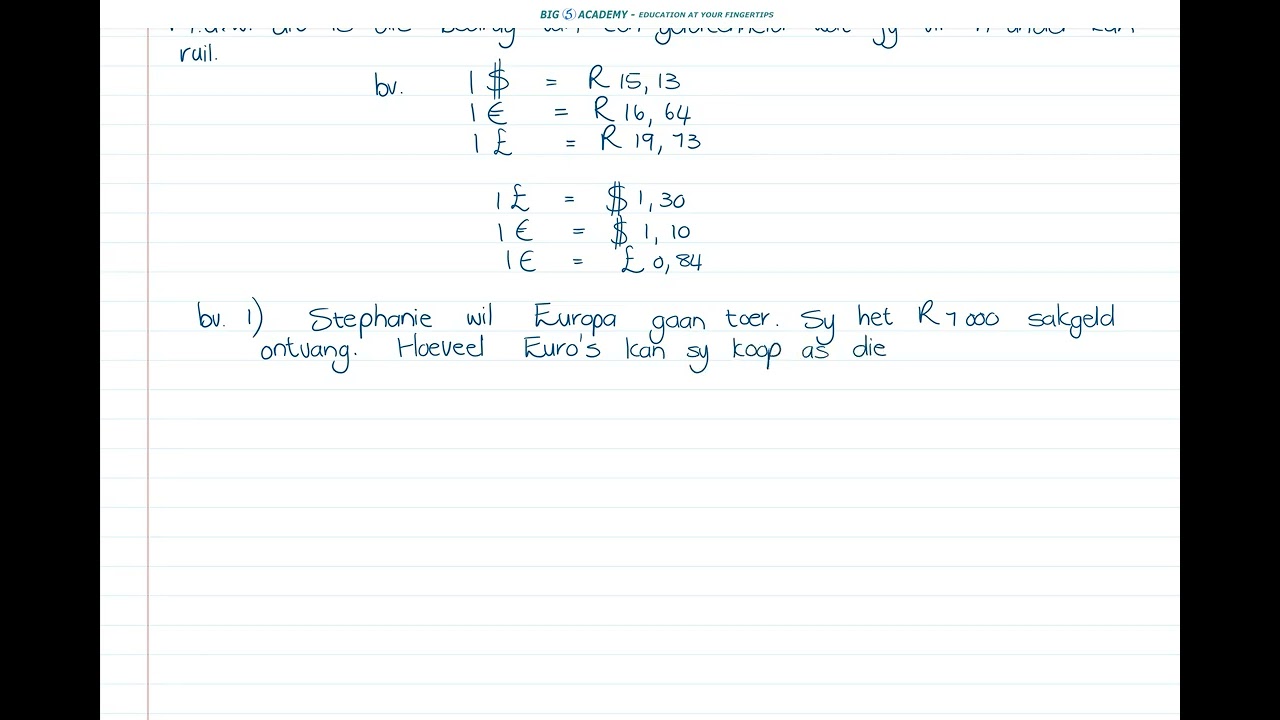 BIG 5 ACADEMY - EDUCATION AT YOUR FINGERTIPS
ruil.
bv. 1 $ = R 15,13
1 € = R 16,64
1 £ = R 19,73
1 £ = $ 1,30
1 € = $ 1,10
1 € = £ 0,84
bv. 1) Stephanie wil Europa gaan toer. Sy het R7000 sakgeld
ontvang. Hoeveel Euro's kan sy koop as die